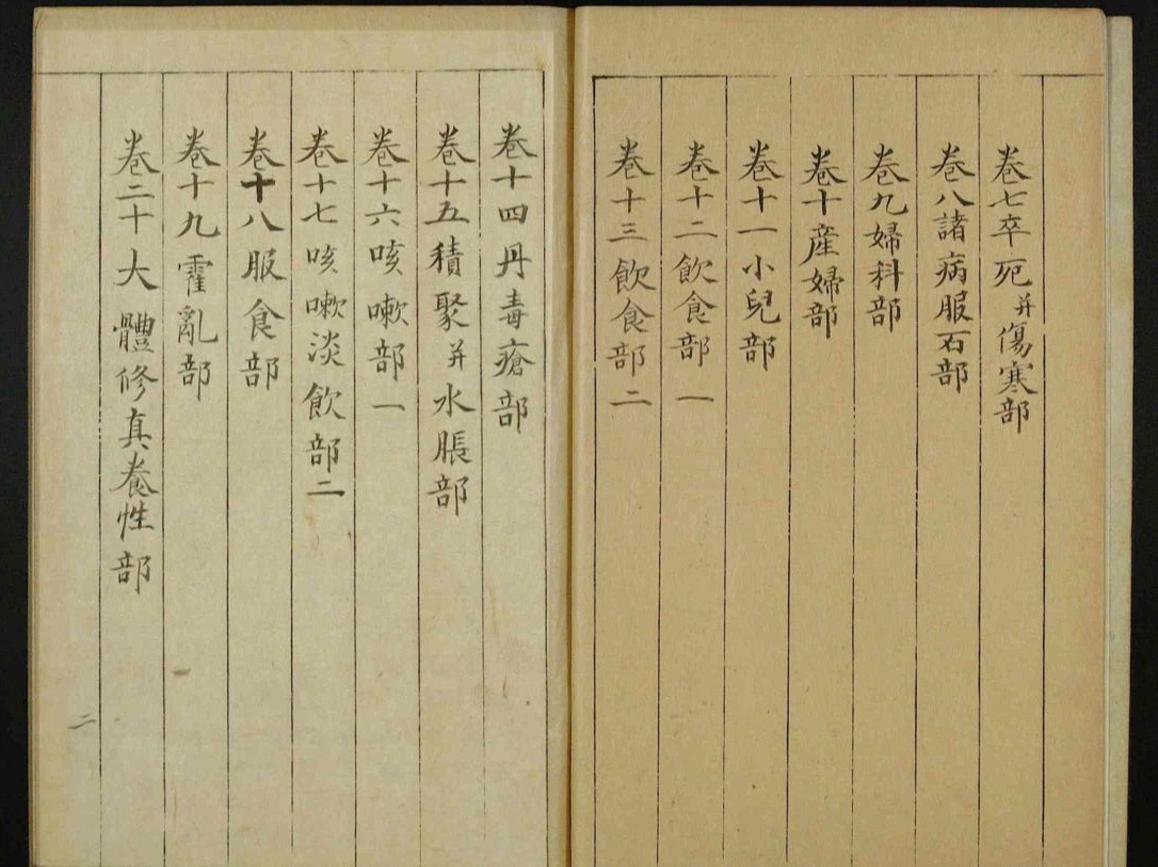 卷七卒死并傷寒部
卷八諸病服石部
卷九婦科部
卷十産婦部
卷十一小兒部
卷十二飲食部一
卷十三飲食部二
卷十四丹毒瘡部
卷十五積聚并水脹部
卷十六咳嗽部一
卷十七咳嗽淡飲部二
卷十八服食部
卷十九霍亂部
卷二十大體修真養性部
二